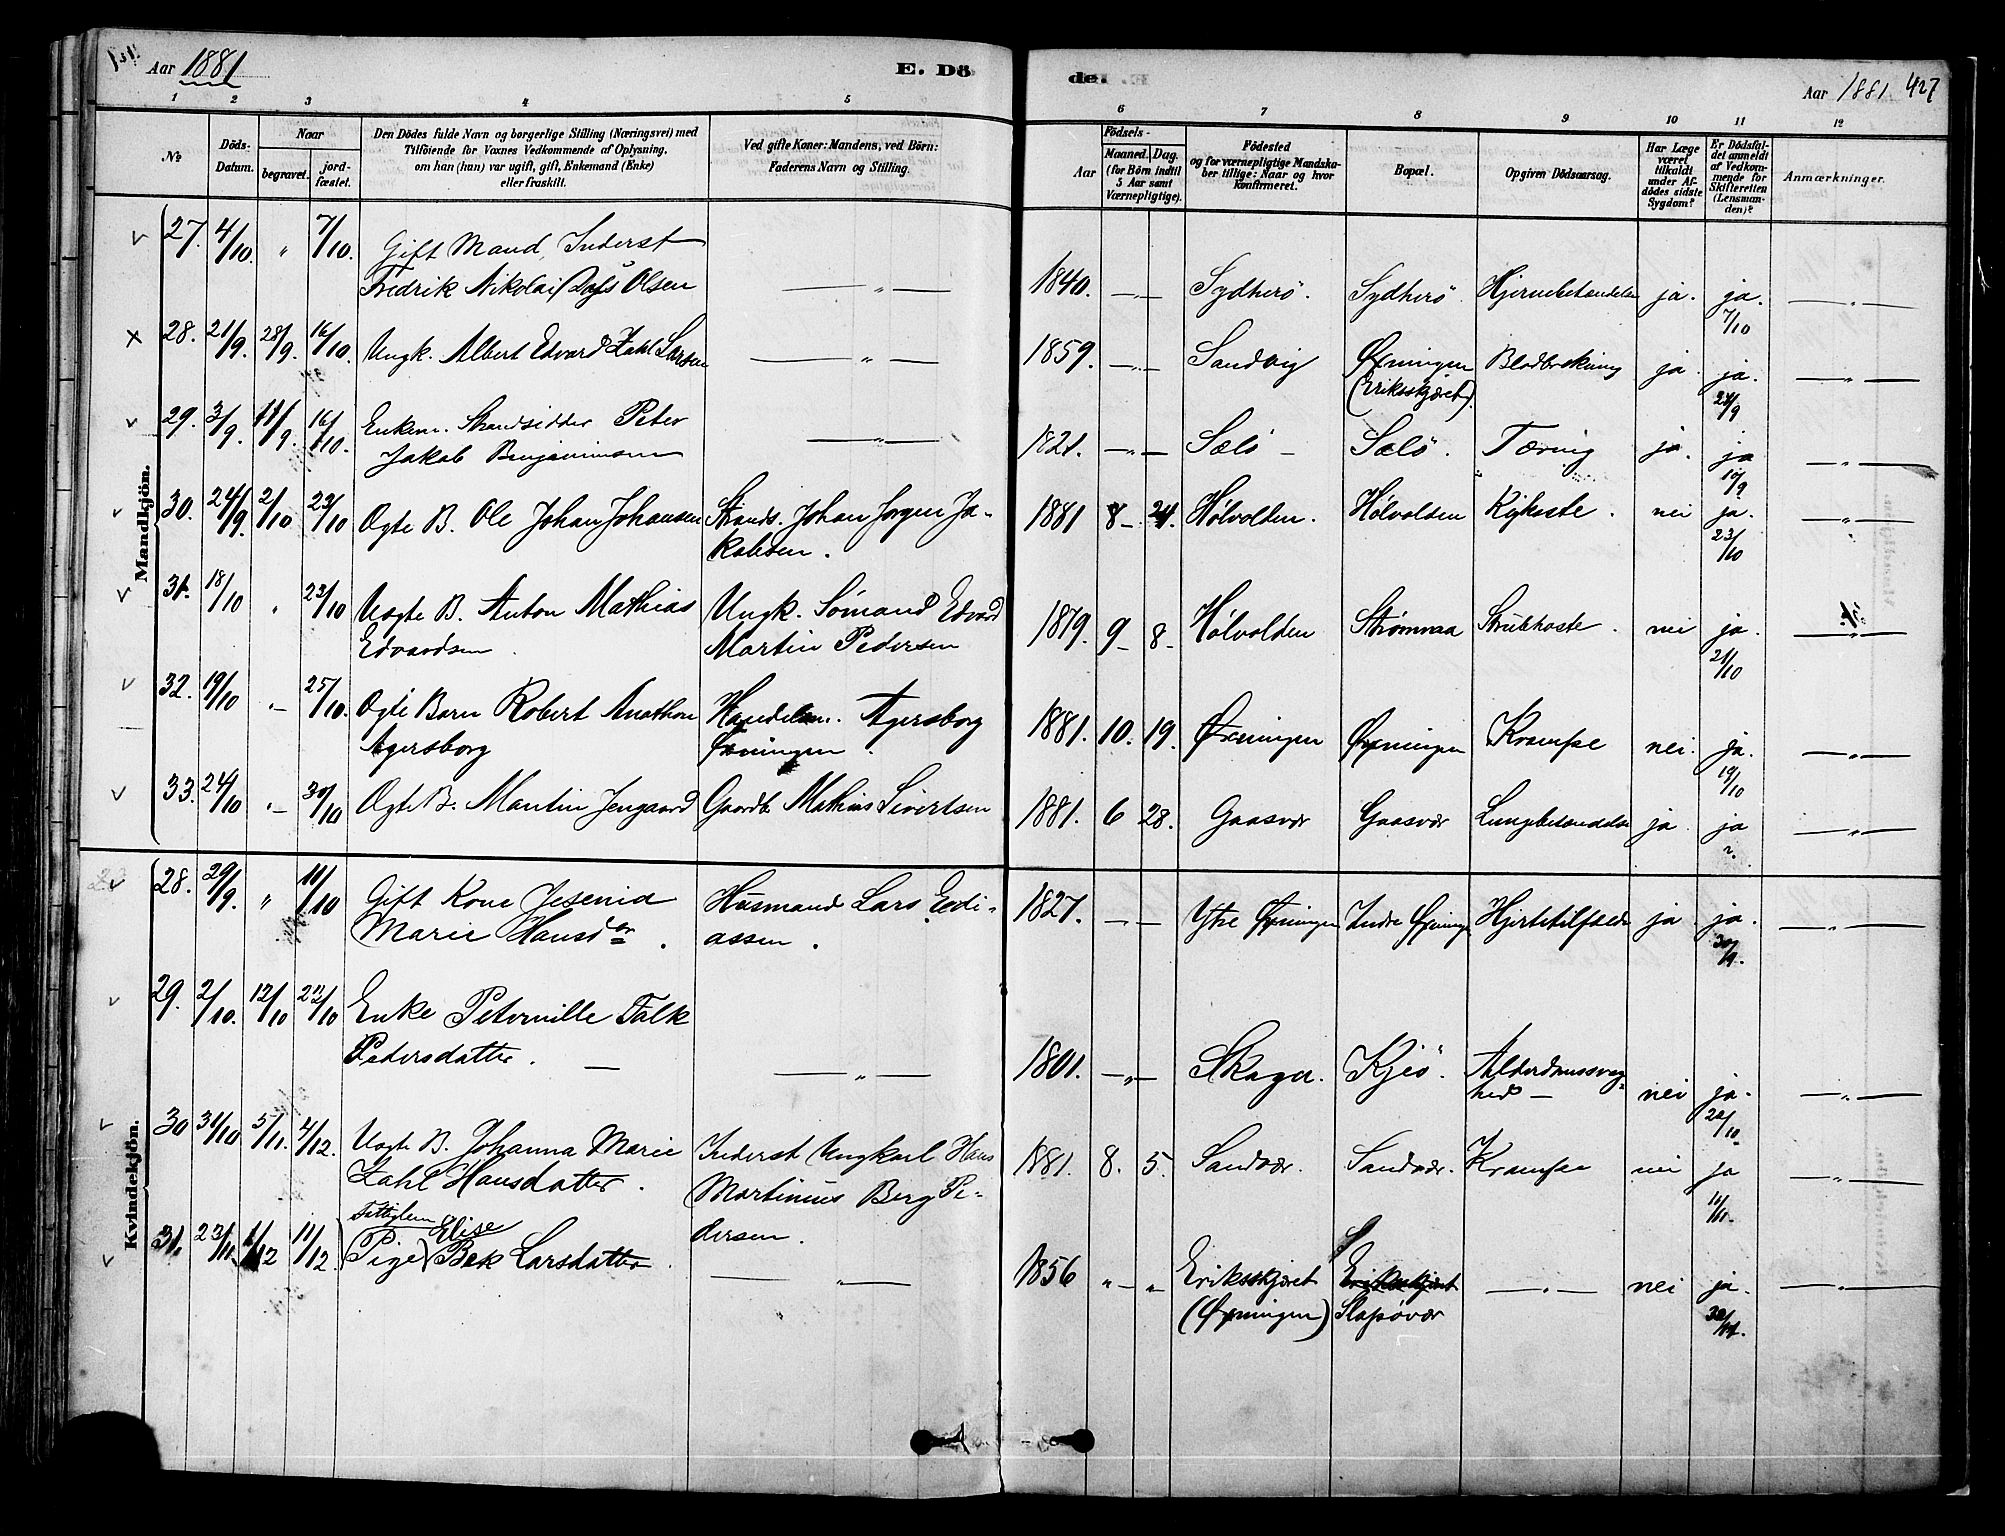 Aar 1881
E. Dö
de.
Aar 1881 427
1 2 3 4 5 6 7 8 9 10 11 12
№
Döds-Datum.
Naar
begravet.
jord-fæstet.
Den Dödes fulde Navn og borgerlige Stilling (Næringsvei) med
Tilföiende for Voxnes Vedkommende af Oplysning,
om han (hun) var ugift, gift, Enkemand (Enke)
eller fraskilt.
Ved gifte Koner: Mandens, ved Börn:
Faderens Navn og Stilling.
Födsels-
Aar
Maaned. Dag.
(for Börn indtil
5 Aar samt
Værnepligtige).
Födested
og for værnepligtige Mandska-
ber tillige: Naar og hvor
konfirmeret.
Bopæl.
Opgiven Dödsaarsag.
Har Læge
været
tilkaldt
under Af-
dödes sidste
Sygdom?
Er Dödsfal-
det anmeldt
af Vedkom-
mende for
Skifteretten
(Lensman-
den)?
Anmærkninger.
Mandkjön.
27. 4/10. " 7/10. Gift Mand, Inderst
Fredrik Nikolai Olsen — " — 1840. — Sydherö. Sydherö. Hjernebetændelse ja. ja. 7/10 — " —
28. 21/9. 28/9. 16/10. Ungk. Albert Edvard Zahl Larsen — " — 1859. — Sandvig Øxningen (Eriksskjæret). Blodbrækning ja. ja. 24/9 — " —
29. 3/9. 11/9. 16/10. Enkem. Strandsidder Peter
Jakob Benjaminsen — " — 1821. — " — Sælö — Sælö. Tæring ja. ja 10/9 — " —
30. 24/9. 2/10 23/10 Ægte B. Ole Johan Johansen Strands. Johan Jørgen Ja-
kobsen. 1881 8 — 24. Hølvolden. Hølvolden Kighoste. nei ja. 23/10 — " —
31. 18/10 " 23/10 Uægte B. Anton Mathias
Edvardsen. Ungk. Sömand Edvard
Martin Pedersen 1879. 9 — 8 — Hølvolden Strømmaa Strubehoste. nei ja. 21/10 — " —
32. 19/10 " — 25/10. Ægte Barn Robert Anathon
Agersborg Handelsm. Agersborg
Øxningen. 1881. 10. 19. Øxningen Øxningen Krampe nei. ja. 19/10 — " —
33. 24/10 " — 30/10 Ægte B. Martin Jengaard Gaardb. Mathias Sivertsen 1881. 6 28. Gaasvær Gaasvær Lungebetændelse ja. ja ?. — " —
Kvindekjön.
28. 29/9. " 11/10 Gift Kone Jesenia
Marie Hansdtr. Husmand Lars Eedi-
assen. 1827. — — Ytre Øxningen Indre Øxningen Hjertetilfælde ja ja. 30/9. — " —
29. 2/10. 12/10 22/10 Enke Peternille Falk
Pedersdatter. — — " — 1801. — " — Skaga. Kjeö. Alderdomssvag-
hed — nei ja. 22/10. — " —
30 31/10 5/11. 4/12. Uægte B. Johanna Marie
Zahl Hansdatter. Inderst Ungkarl Hans
Martinius Berg Pe-
dersen. 1881. 8. 5. Sandvær. Sandvær. Krampe nei ja 10/11. — " —
31. 23/11. 1/12 11/12 Fattiglem
(Pige) Elise Bek Larsdatter. — " — 1856 " — " Eriksskjæret
(Øxningen) Eriksskjæret
Slapøvær — " — nei ja. 30/11. — " —